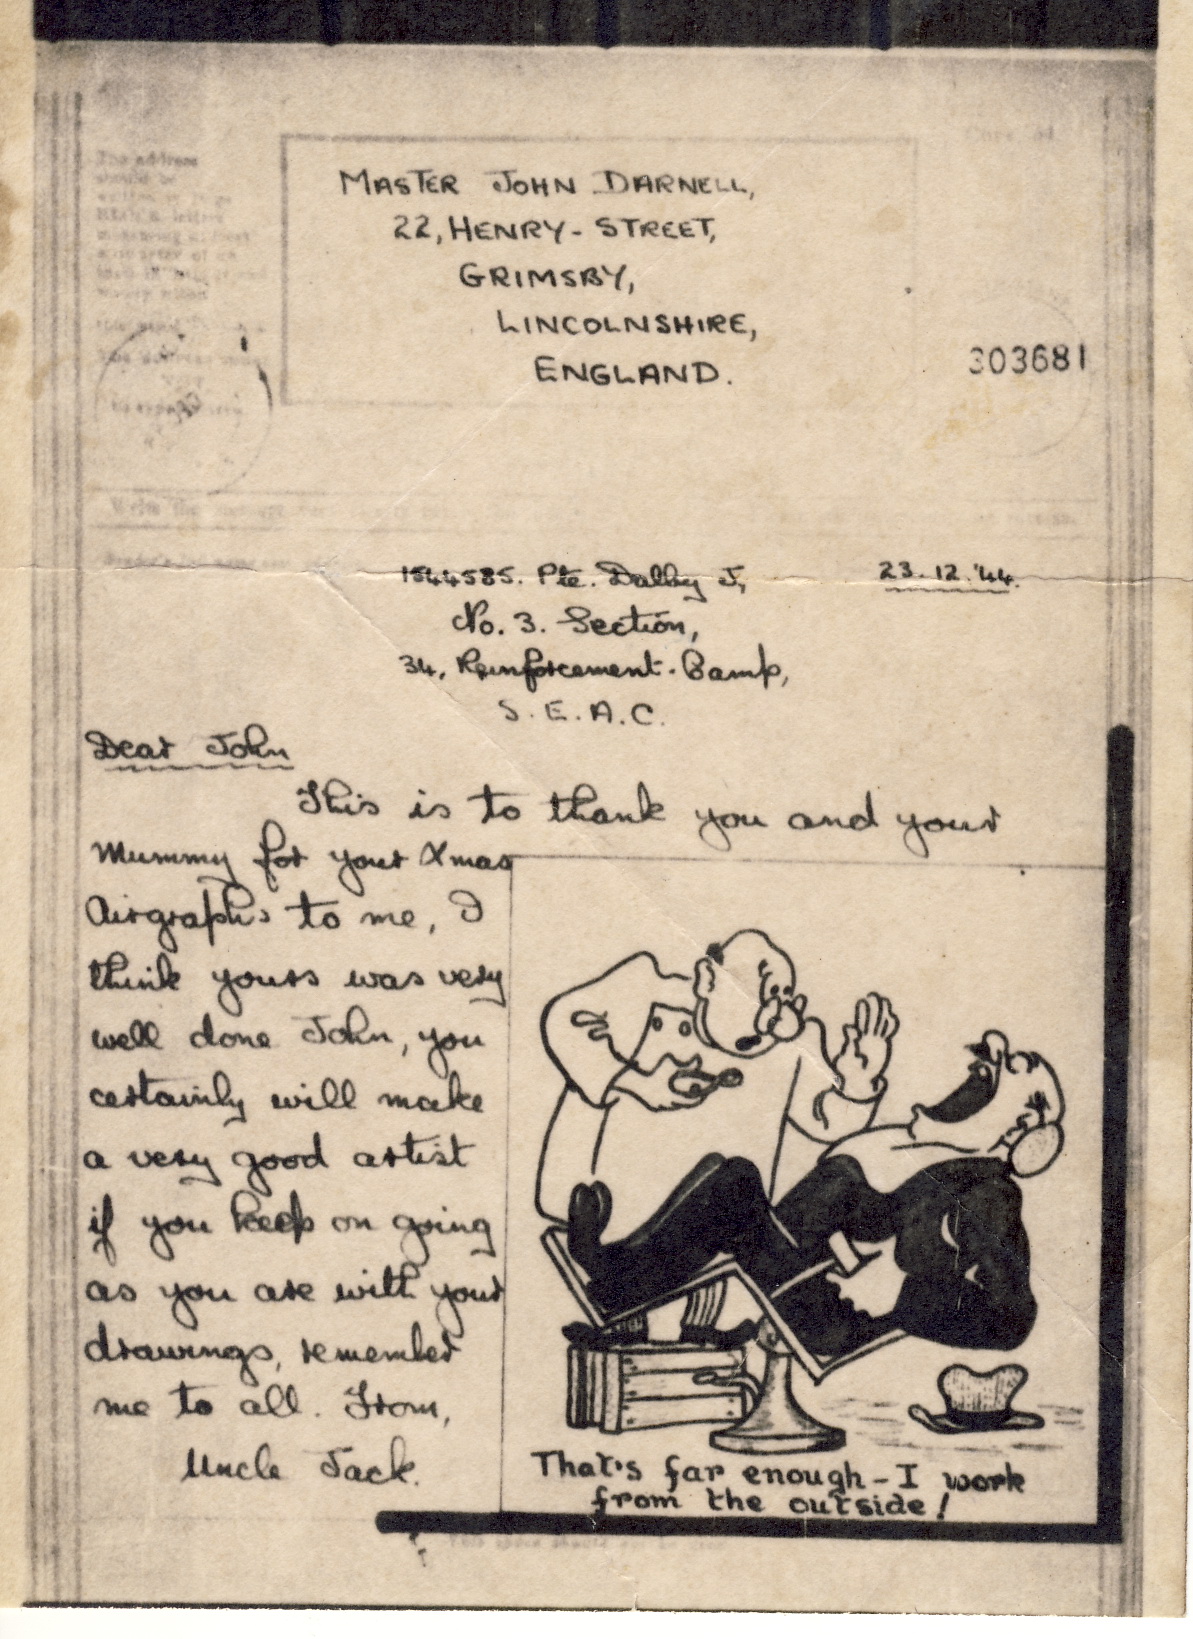 The address
should be
MASTER JOHN DARNELL,
22, HENRY-STREET,
GRIMSBY,
LINCOLNSHIRE,
ENGLAND.
303681
Write the
1544585. Pte. Dalby J,
23.12.'44.
No. 3. Section,
34, Reinforcement-Camp,
S.E.A.C.
Dear John
This is to thank you and your
Mummy for your Xmas
Airgraphs to me, I
think yours was very
well done John, you
certainly will make
a very good artist
if you keep on going
as you are with your
drawings, remember
me to all. From,
Uncle Jack.
That's far enough - I work
from the outside!